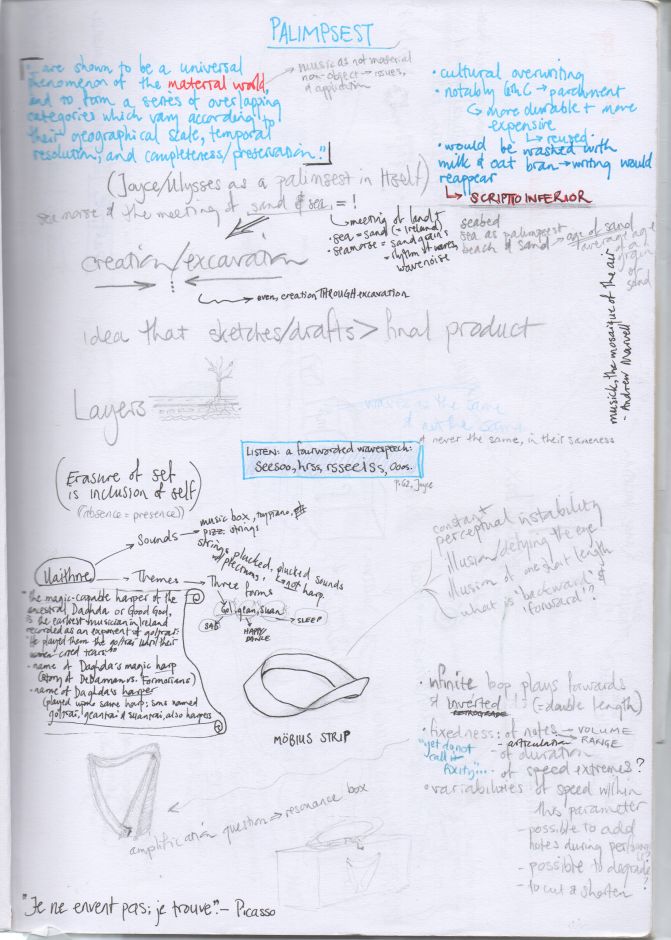 PALIMPSEST
"...are shown to be a universal
phenomenon of the material world,
and to form a series of overlapping
categories which vary according to
their geographical scale, temporal
resolution, and completeness/preservation."
music as not material
non-object → issues,
of application
• cultural overwriting
• notably 6th C → parchment
↳ more durable + more
expensive
↳ reused
• would be washed with
milk & oat bran → writing would
reappear
↳ SCRIPTIO INFERIOR
(Joyce/Ulysses as a palimsest in itself)
sea morse & the meeting of sand & sea = !
↳ meeting of land +
• sea = sand (= Ireland)
• seamorse = sandgrain's
+ rhythm of waves,
wavenoise
seabed
sea as palimpsest
beach & sand → age of sand
average age
of a
grain
of
sand
musick, the mosaique of the air
- Andrew Marvell
creation/excavation
↳ even, creation THROUGH excavation
idea that sketches/drafts > final product
Layers
waves is the same
& not the same
& never the same, in their sameness
LISTEN: a fourworded wavespeech:
seesoo, hrss, rsseeiss, ooos.
p.62, Joyce
(Erasure of self
is inclusion of self)
((absence = presence))
Sounds
music box, toypiano,
pizz strings
strings plucked, plucked sounds
w/ plectrums, ↳ not harp.
Uaithne → Themes → Three forms
Gol, gean, Suan
SAD
HAPPY
DANCE
SLEEP
• the magic-capable harper of the
ancestral Daghda or Good God,
is the earliest musician in Ireland
recorded as an exponent of goltrai:
"he played them the goltrai until their
women cried tears"
• name of Daghda's magic harp
(story of Dedannans v. Fomorians)
• name of Daghda's harper
(played upon same harp; sons named
goltrai, geantrai & suantrai, also harpers
constant
perceptual instability
illusion/defying the eye
illusion of one short length
what is 'backward' or
'forward'?
MÖBIUS STRIP
• infinite loop plays forwards
& inverted (= double length)
RETROGRADE
• fixedness: of notes → VOLUME
- articulation RANGE
- of duration
- of speed extremes?
"yet do not
call it
fixity"...
• variabilities of speed within
this parameter
- possible to add
notes during perf
- possible to degrade
- to cut & shorten
amplification question → resonance box
"Je ne envent pas; je trouve". - Picasso